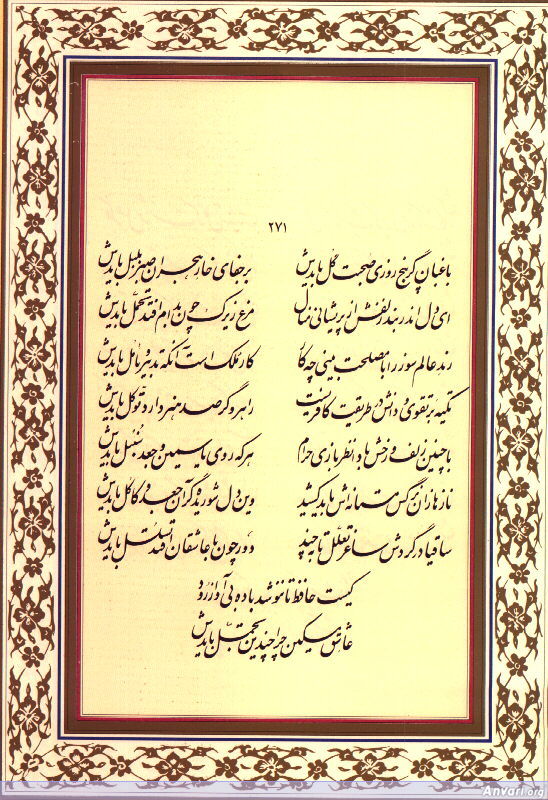 ۲۷۱
باغبان گر پنج روزی صحبت گل بایدش بر جفای خار هجران صبر بلبل بایدش
ای دل اندر بند زلفش از پریشانی منال مرغ زیرک چون بدام افتد تحمل بایدش
رند عالم سوز را با مصلحت بینی چه کار کار ملک است آنکه تدبیر و تأمل بایدش
تکیه بر تقوی و دانش در طریقت کافریست راهرو گر صد هنر دارد توکل بایدش
با چنین زلف و رخش بادا نظربازی حرام هر که روی یاسمین و جعد سنبل بایدش
نازها زان نرگس مستانه‌اش باید کشید وین دل شوریده گر آن جعد و کاکل بایدش
ساقیا در گردش ساغر تعلل تا بچند دور چون با عاشقان افتد تسلسل بایدش
کیست حافظ تا ننوشد باده بی آواز رود
عاشق مسکین چرا چندین تجمل بایدش
Anvari.org